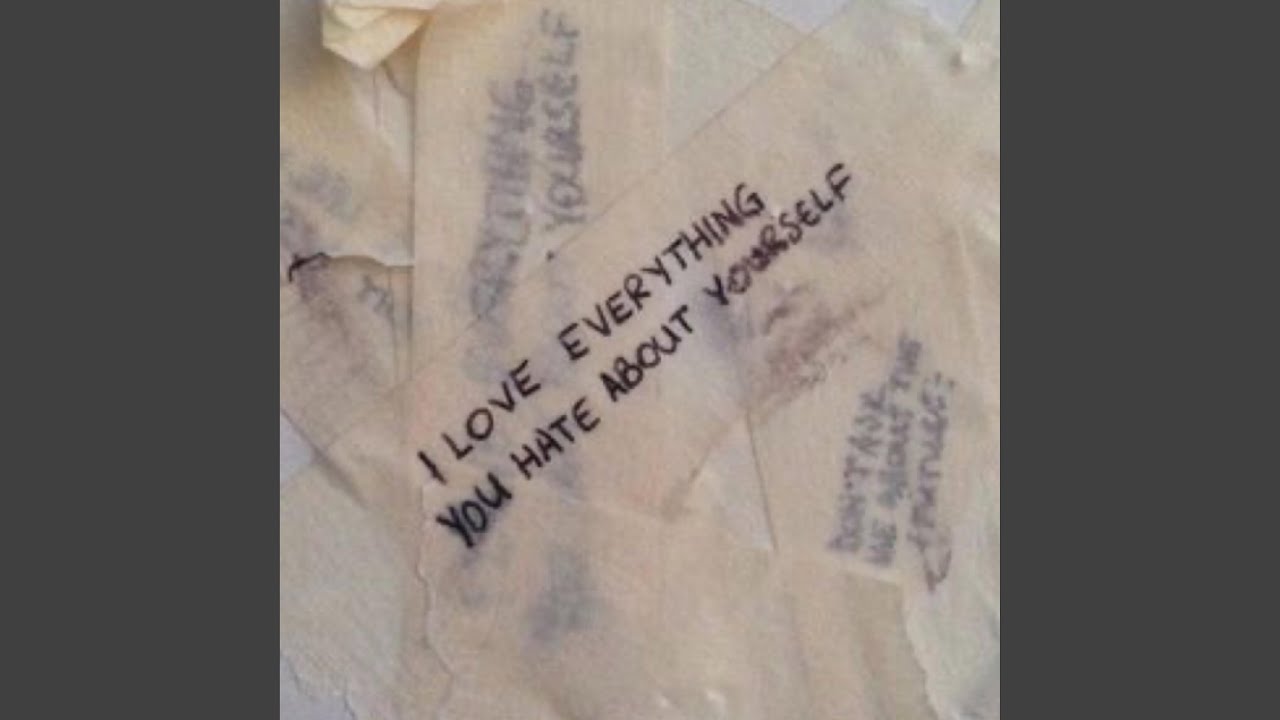 I LOVE EVERYTHING
YOU HATE ABOUT YOURSELF
EVERYTHING
YOURSELF
DON'T
ME ABOUT THE